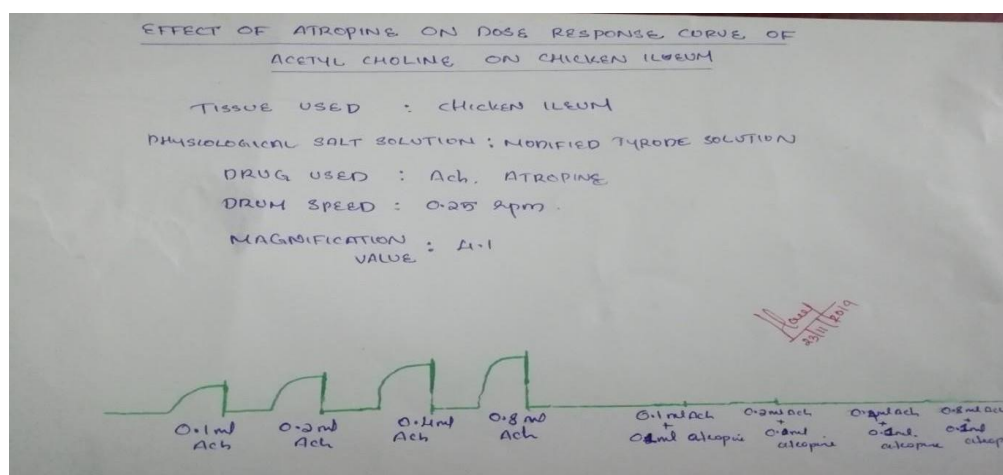 EFFECT OF ATROPINE ON DOSE RESPONSE CURVE OF
ACETYL CHOLINE ON CHICKEN ILEUM
TISSUE USED : CHICKEN ILEUM
PHYSIOLOGICAL SALT SOLUTION : MODIFIED TYRODE SOLUTION
DRUG USED : Ach, ATROPINE
DRUM SPEED : 0.25 rpm.
MAGNIFICATION : 4.1
VALUE
23/11/2019
0.1ml 0.2ml 0.4ml 0.8ml
Ach Ach Ach Ach
0.1ml Ach 0.2ml Ach Ach 0.8ml Ach
+ + + +
ml atropine ml ml ml
atropine atropine atrop